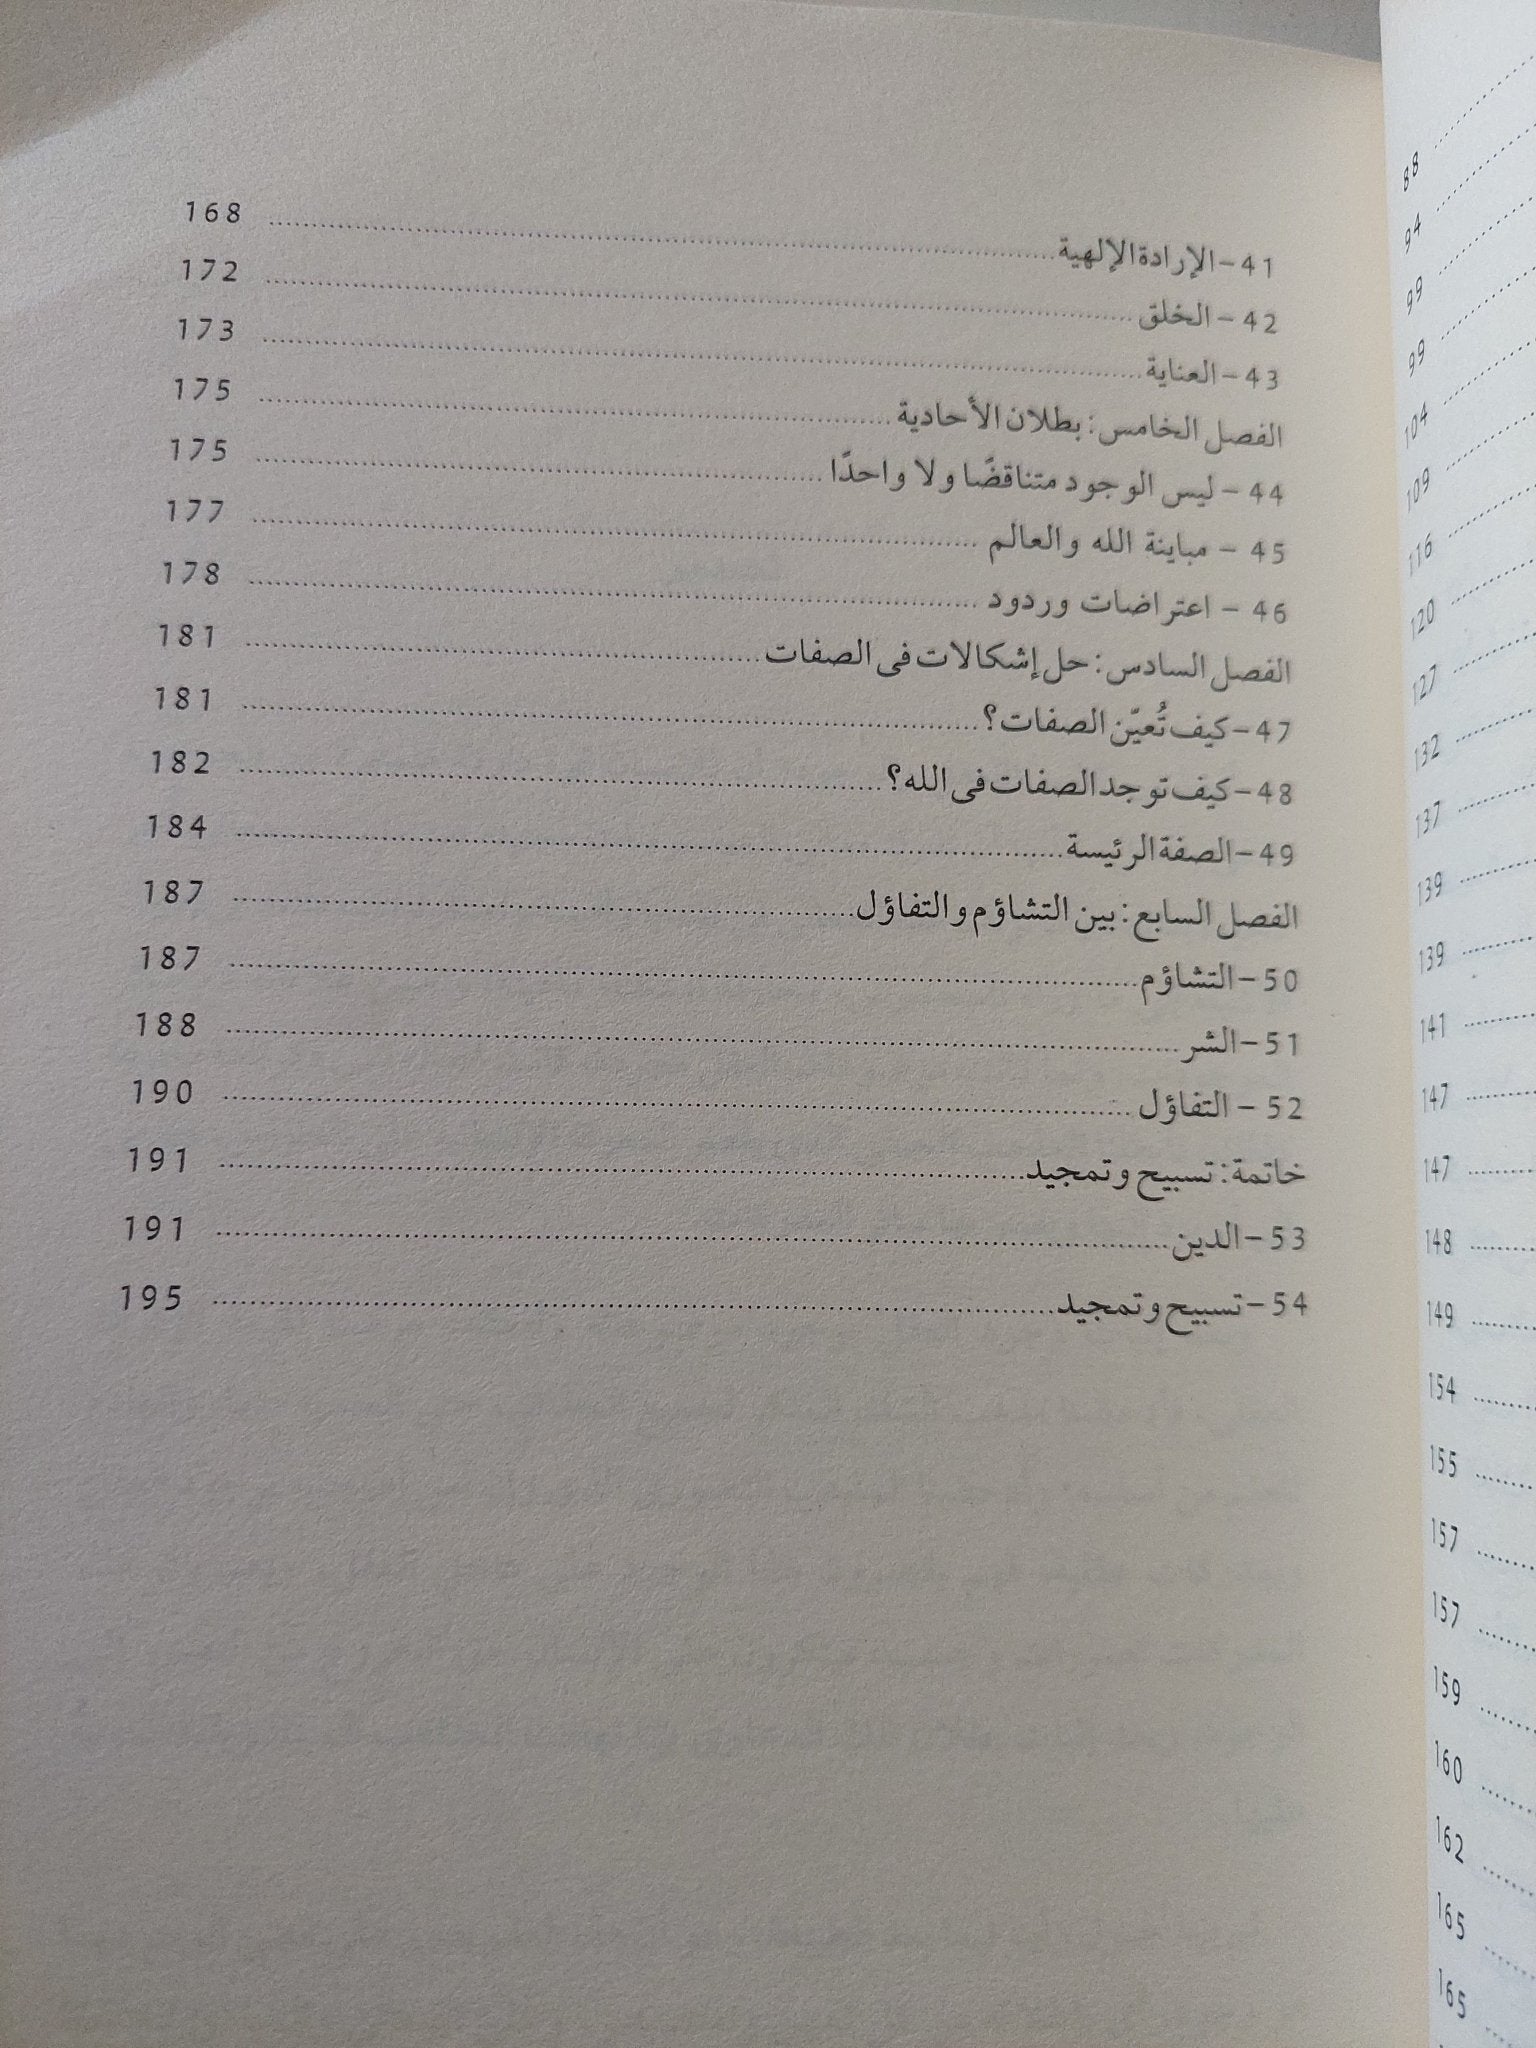 41-الإرادة الإلهية 168
42 - الخلق 172
43 - العناية 173
الفصل الخامس: بطلان الأحادية 175
44 - ليس الوجود متناقضًا ولا واحدًا 175
45 - مباينة الله والعالم 177
46 - اعتراضات وردود 178
الفصل السادس: حل إشكالات فى الصفات 181
47-كيف تُعيّن الصفات؟ 181
48-كيف توجد الصفات فى الله؟ 182
49-الصفة الرئيسة 184
الفصل السابع: بين التشاؤم والتفاؤل 187
50-التشاؤم 187
51-الشر 188
52 - التفاؤل 190
خاتمة: تسبيح وتمجيد 191
53-الدين 191
54-تسبيح وتمجيد 195
88
94
99
99
104
109
116
120
127
132
137
139
139
141
147
147
148
149
154
155
157
157
159
160
162
165
165